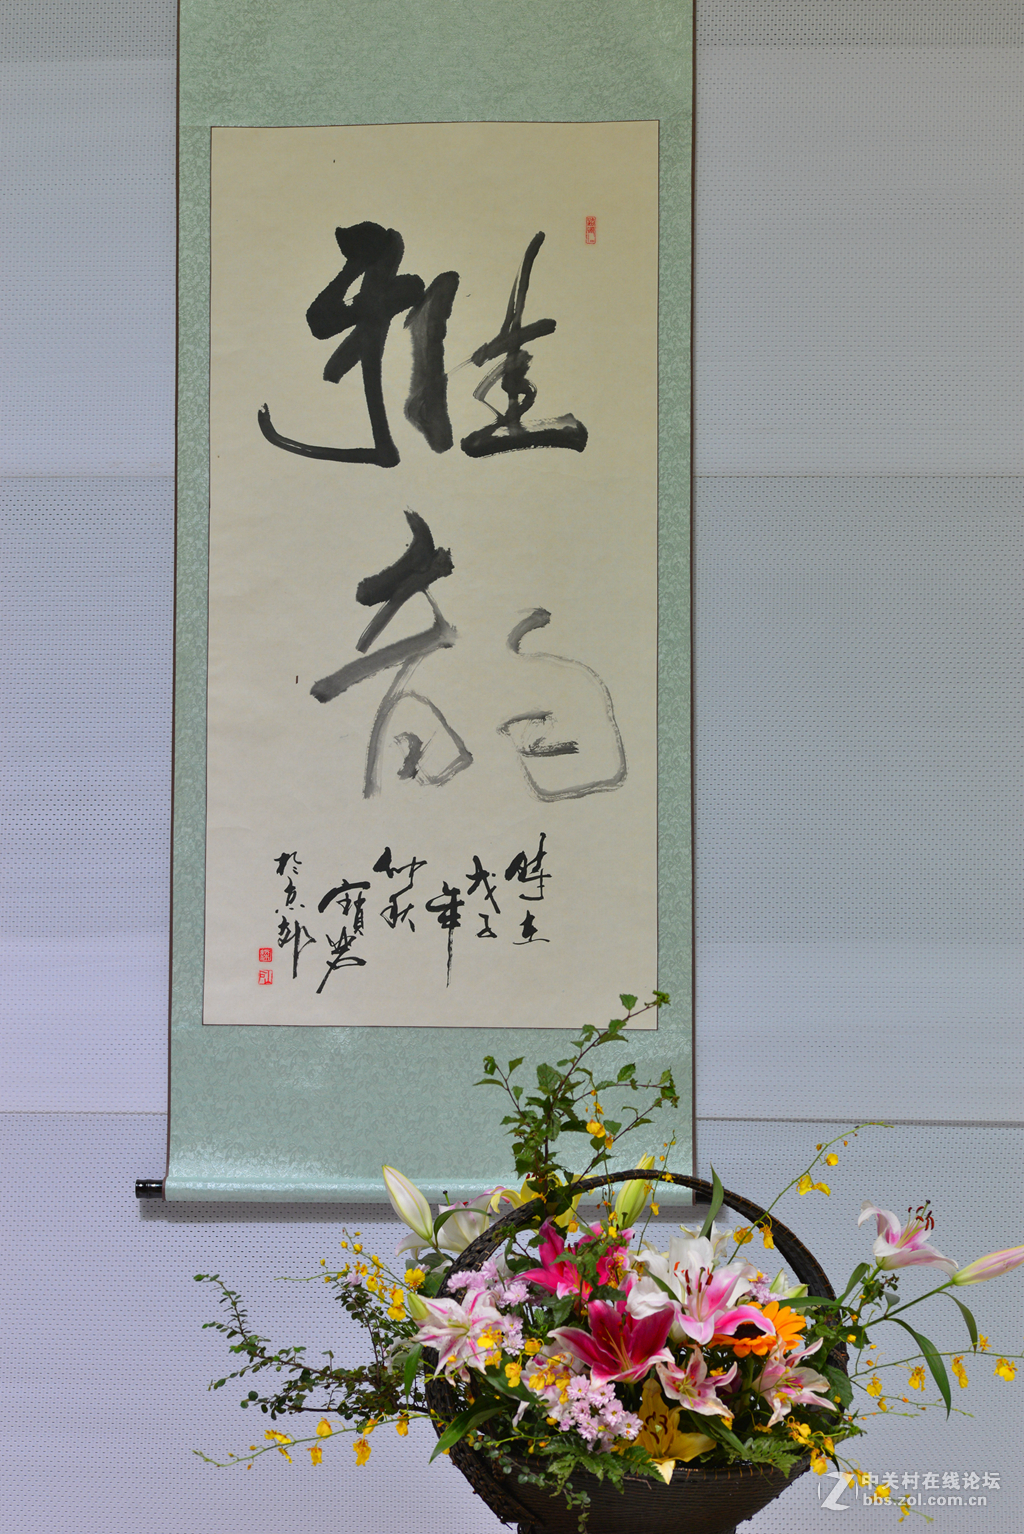 雅韵
时在
戊子
年
仲秋
宝
於京都
中关村在线论坛
bbs.zol.com.cn